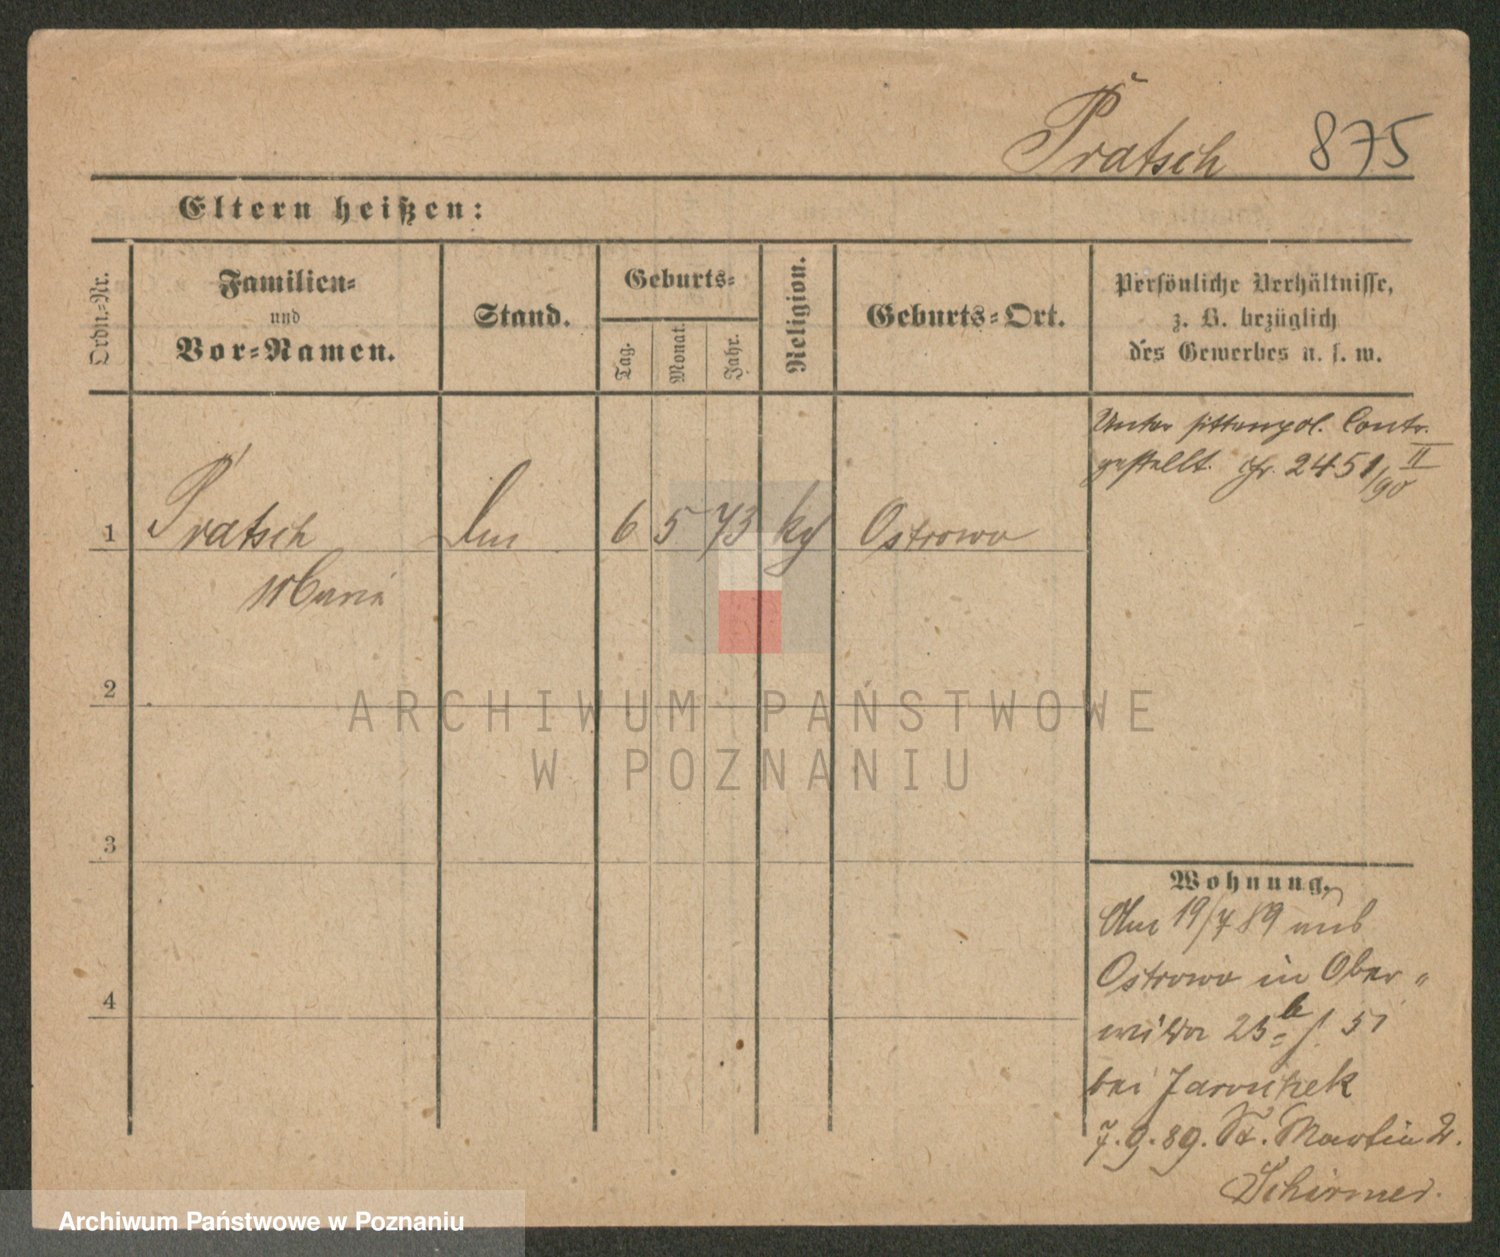 Pratsch 875
Eltern heißen:
Ordn.-Nr.
Familien-
und
Vor-Namen.
Stand.
Geburts-
Tag.
Monat.
Jahr.
Religion.
Geburts-Ort.
Persönliche Verhältnisse,
z. B. bezüglich
des Gewerbes u. s. w.
Unter sittenpol. Contr.
gestellt. cfr. 2451/90 II
1 Pratsch 6 5 73 Ostrowo
Maria
2
3
4
Wohnung.
Am 19/7 89 aus
Ostrowo in Ober-
wilda 25b
bei
7.9.89. St. Martin 2.
Schirmer.
ARCHIWUM PAŃSTWOWE
W POZNANIU
Archiwum Państwowe w Poznaniu